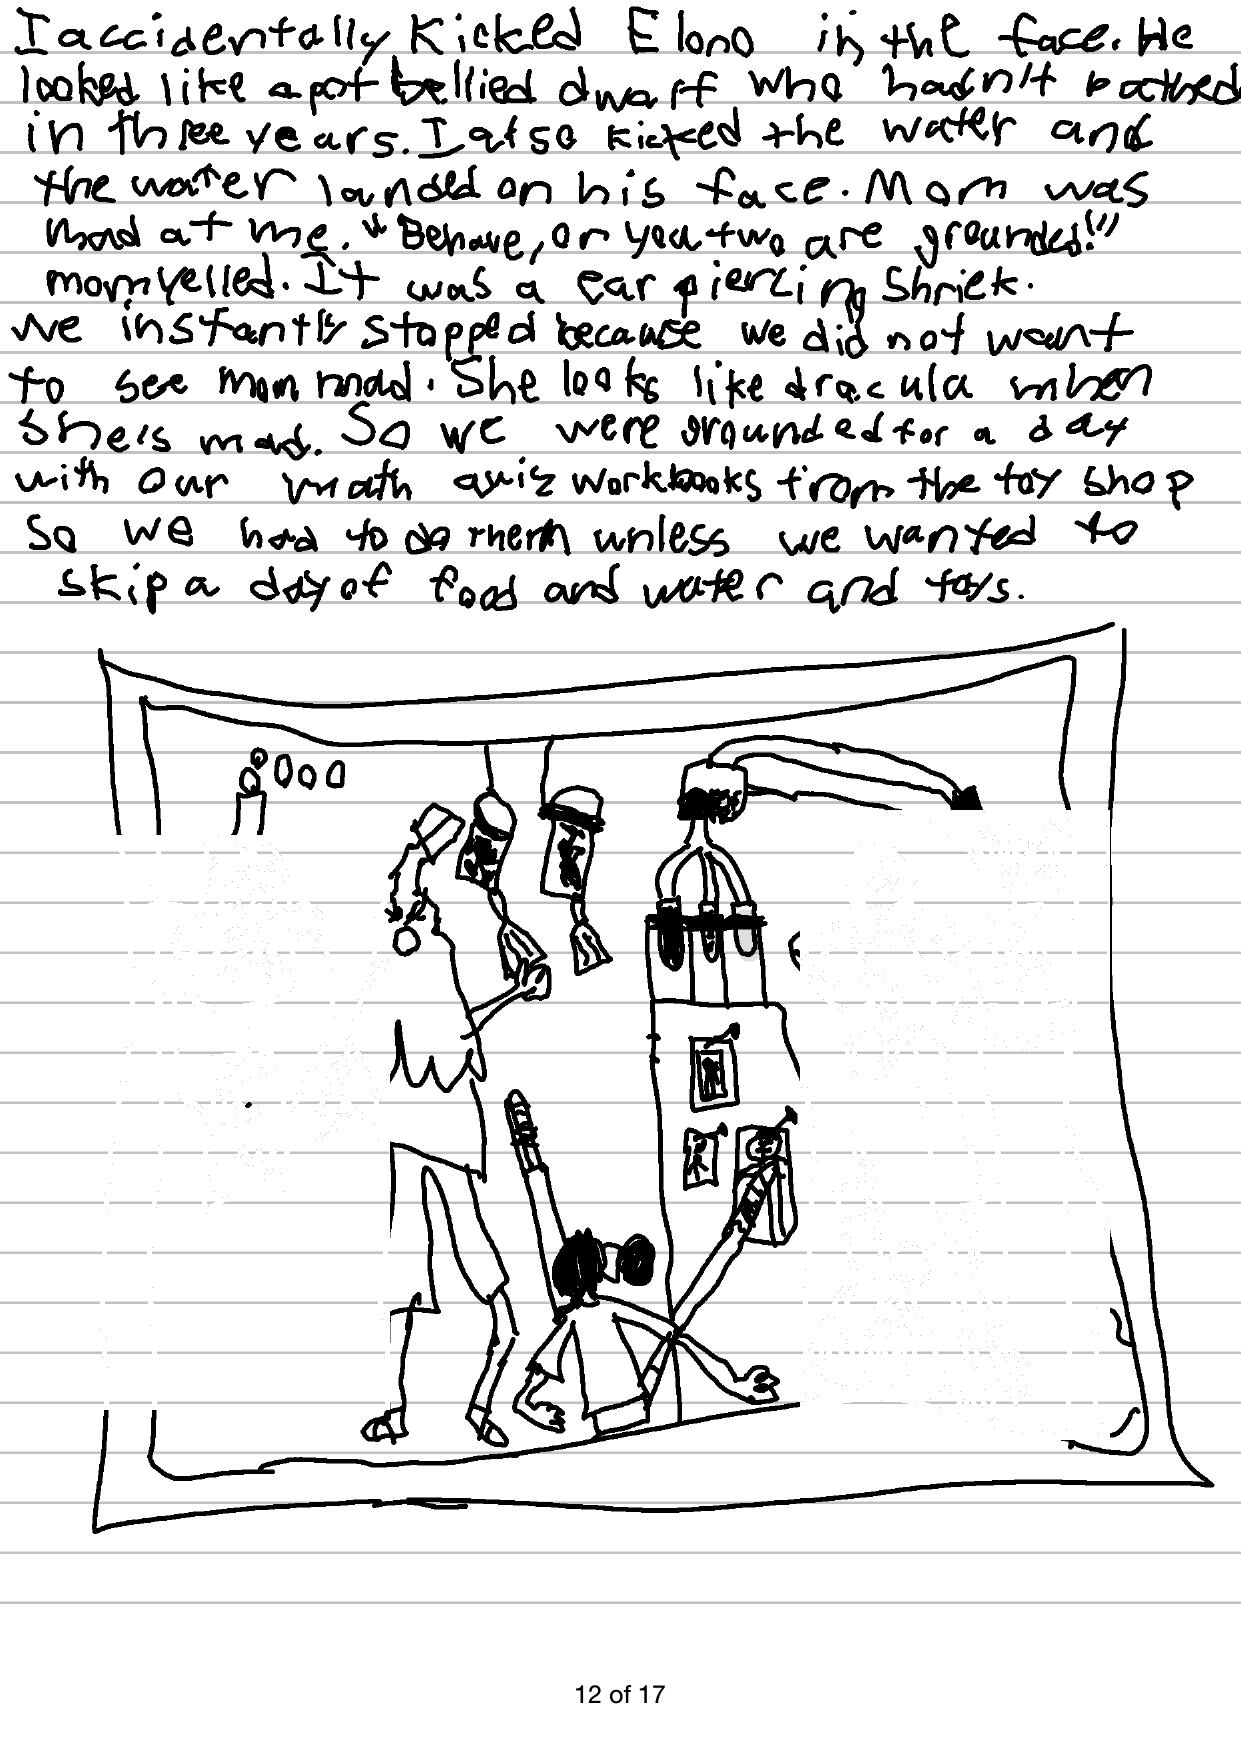 I accidentally Kicked Elono in the face. He
looked like a pot bellied dwarf who hadn't bathed
in three years. I also kicked the water and
the water landed on his face. Mom was
mad at me. "Behave, or you two are grounded!"
mom yelled. It was a ear piercing Shriek.
We instantly stopped because we did not want
to see mom mad. She looks like dracula when
she's mad. So we were grounded for a day
with our math quiz workbooks from the toy shop
So we had to do them unless we wanted to
skip a day of food and water and toys.
12 of 17